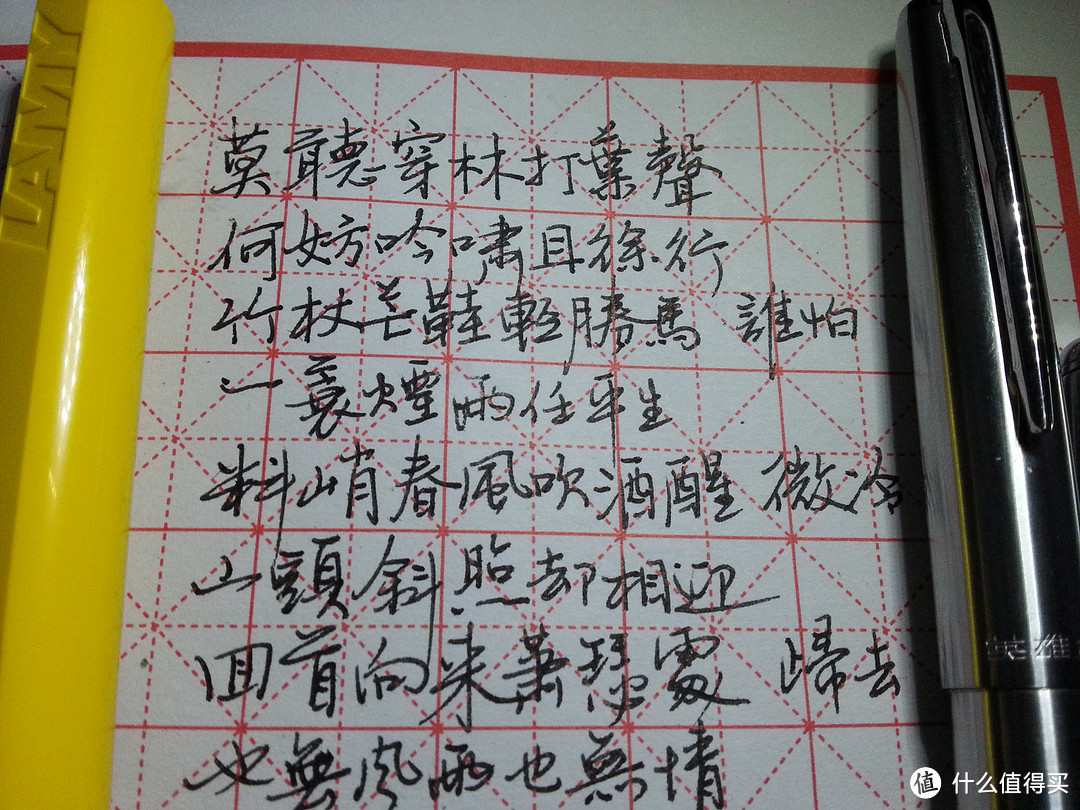 LAMY
莫聽穿林打葉聲
何妨吟嘯且徐行
竹杖芒鞋輕勝馬 誰怕
一蓑煙雨任平生
料峭春風吹酒醒 微冷
山頭斜照却相迎
回首向來蕭瑟處 歸去
也無風雨也無情
英雄
值 什么值得买